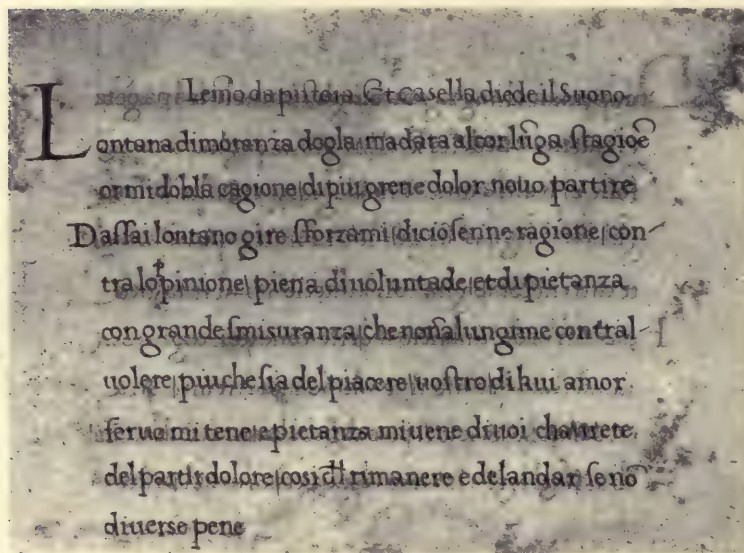 Lemo da pistoia. Et casella diede il Suono
Lontana dimoranza dogla madata al cor lũga stagioẽ
or mi dobla cagione di piu greue dolor nouo partire
Dassai lontano gire sforzami di cio senne ragione con
tra lopinione piena di uoluntade et di pietanza
con grande smisuranza che non alungime contral
uolere piu che sia del piacere uostro di kui amor
seruo mi tene e pietanza mi uene di uoi chaurete
del partir dolore cosi del rimanere e delandar se nõ
diuerse pene